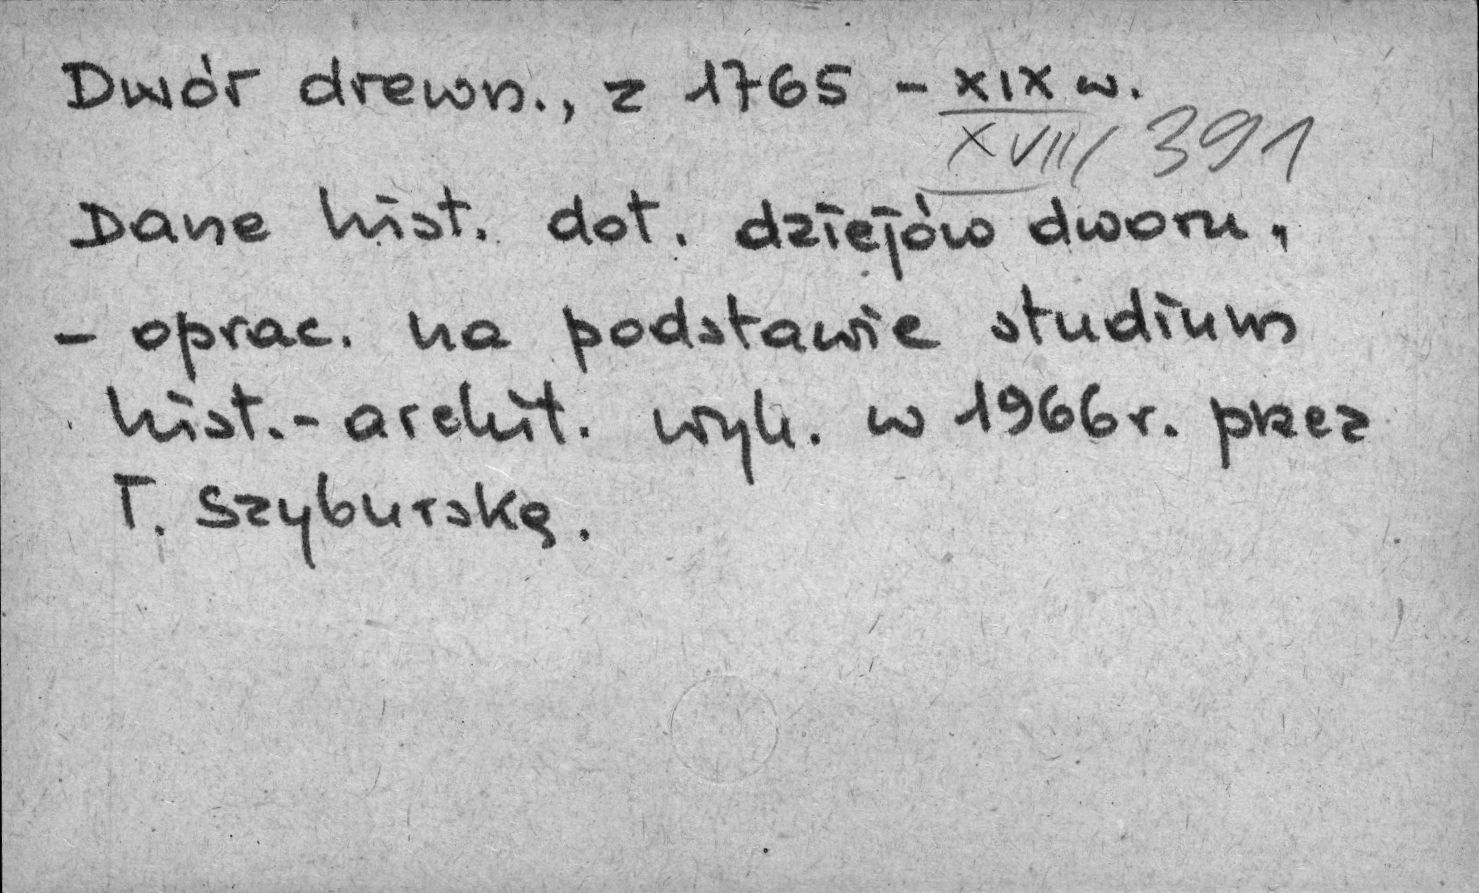 Dwór drewn., z 1765 - XIX w.
XVIII/391
Dane hist. dot. dziejów dworu,
- oprac. na podstawie studium
hist.-archit. wyk. w 1966r. przez
T. Szyburską.